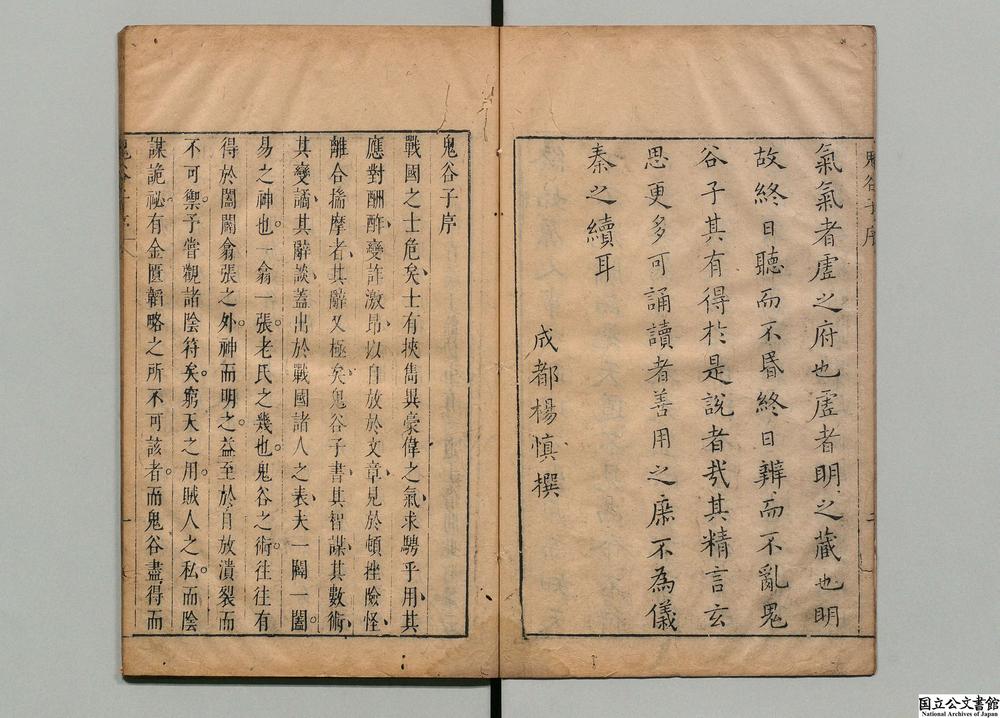 氣氣者虛之府也虛者明之藏也明
故終日聽而不昏終日辨而不亂鬼
谷子其有得於是說者㢤其精言玄
思更多可誦讀者善用之庶不為儀
秦之續耳
成都楊慎撰
鬼谷子序
戰國之士危矣士有挾雋異豪偉之氣求騁乎用其
應對酬酢變詐激昂以自放於文章見於頓挫險怪
離合揣摩者其辭又極矣鬼谷子書其智謀其數術
其變譎其辭談蓋出於戰國諸人之表夫一闢一闔
易之神也。一翕一張。老氏之幾也。鬼谷之術。往往有
得於闔闢翕張之外。神而明之。益至於自放潰裂而
不可禦。予嘗觀諸陰符矣。窮天之用。賊人之私。而陰
謀詭祕。有金匱韜略之所不可該者。而鬼谷盡得而
国立公文書館
National Archives of Japan